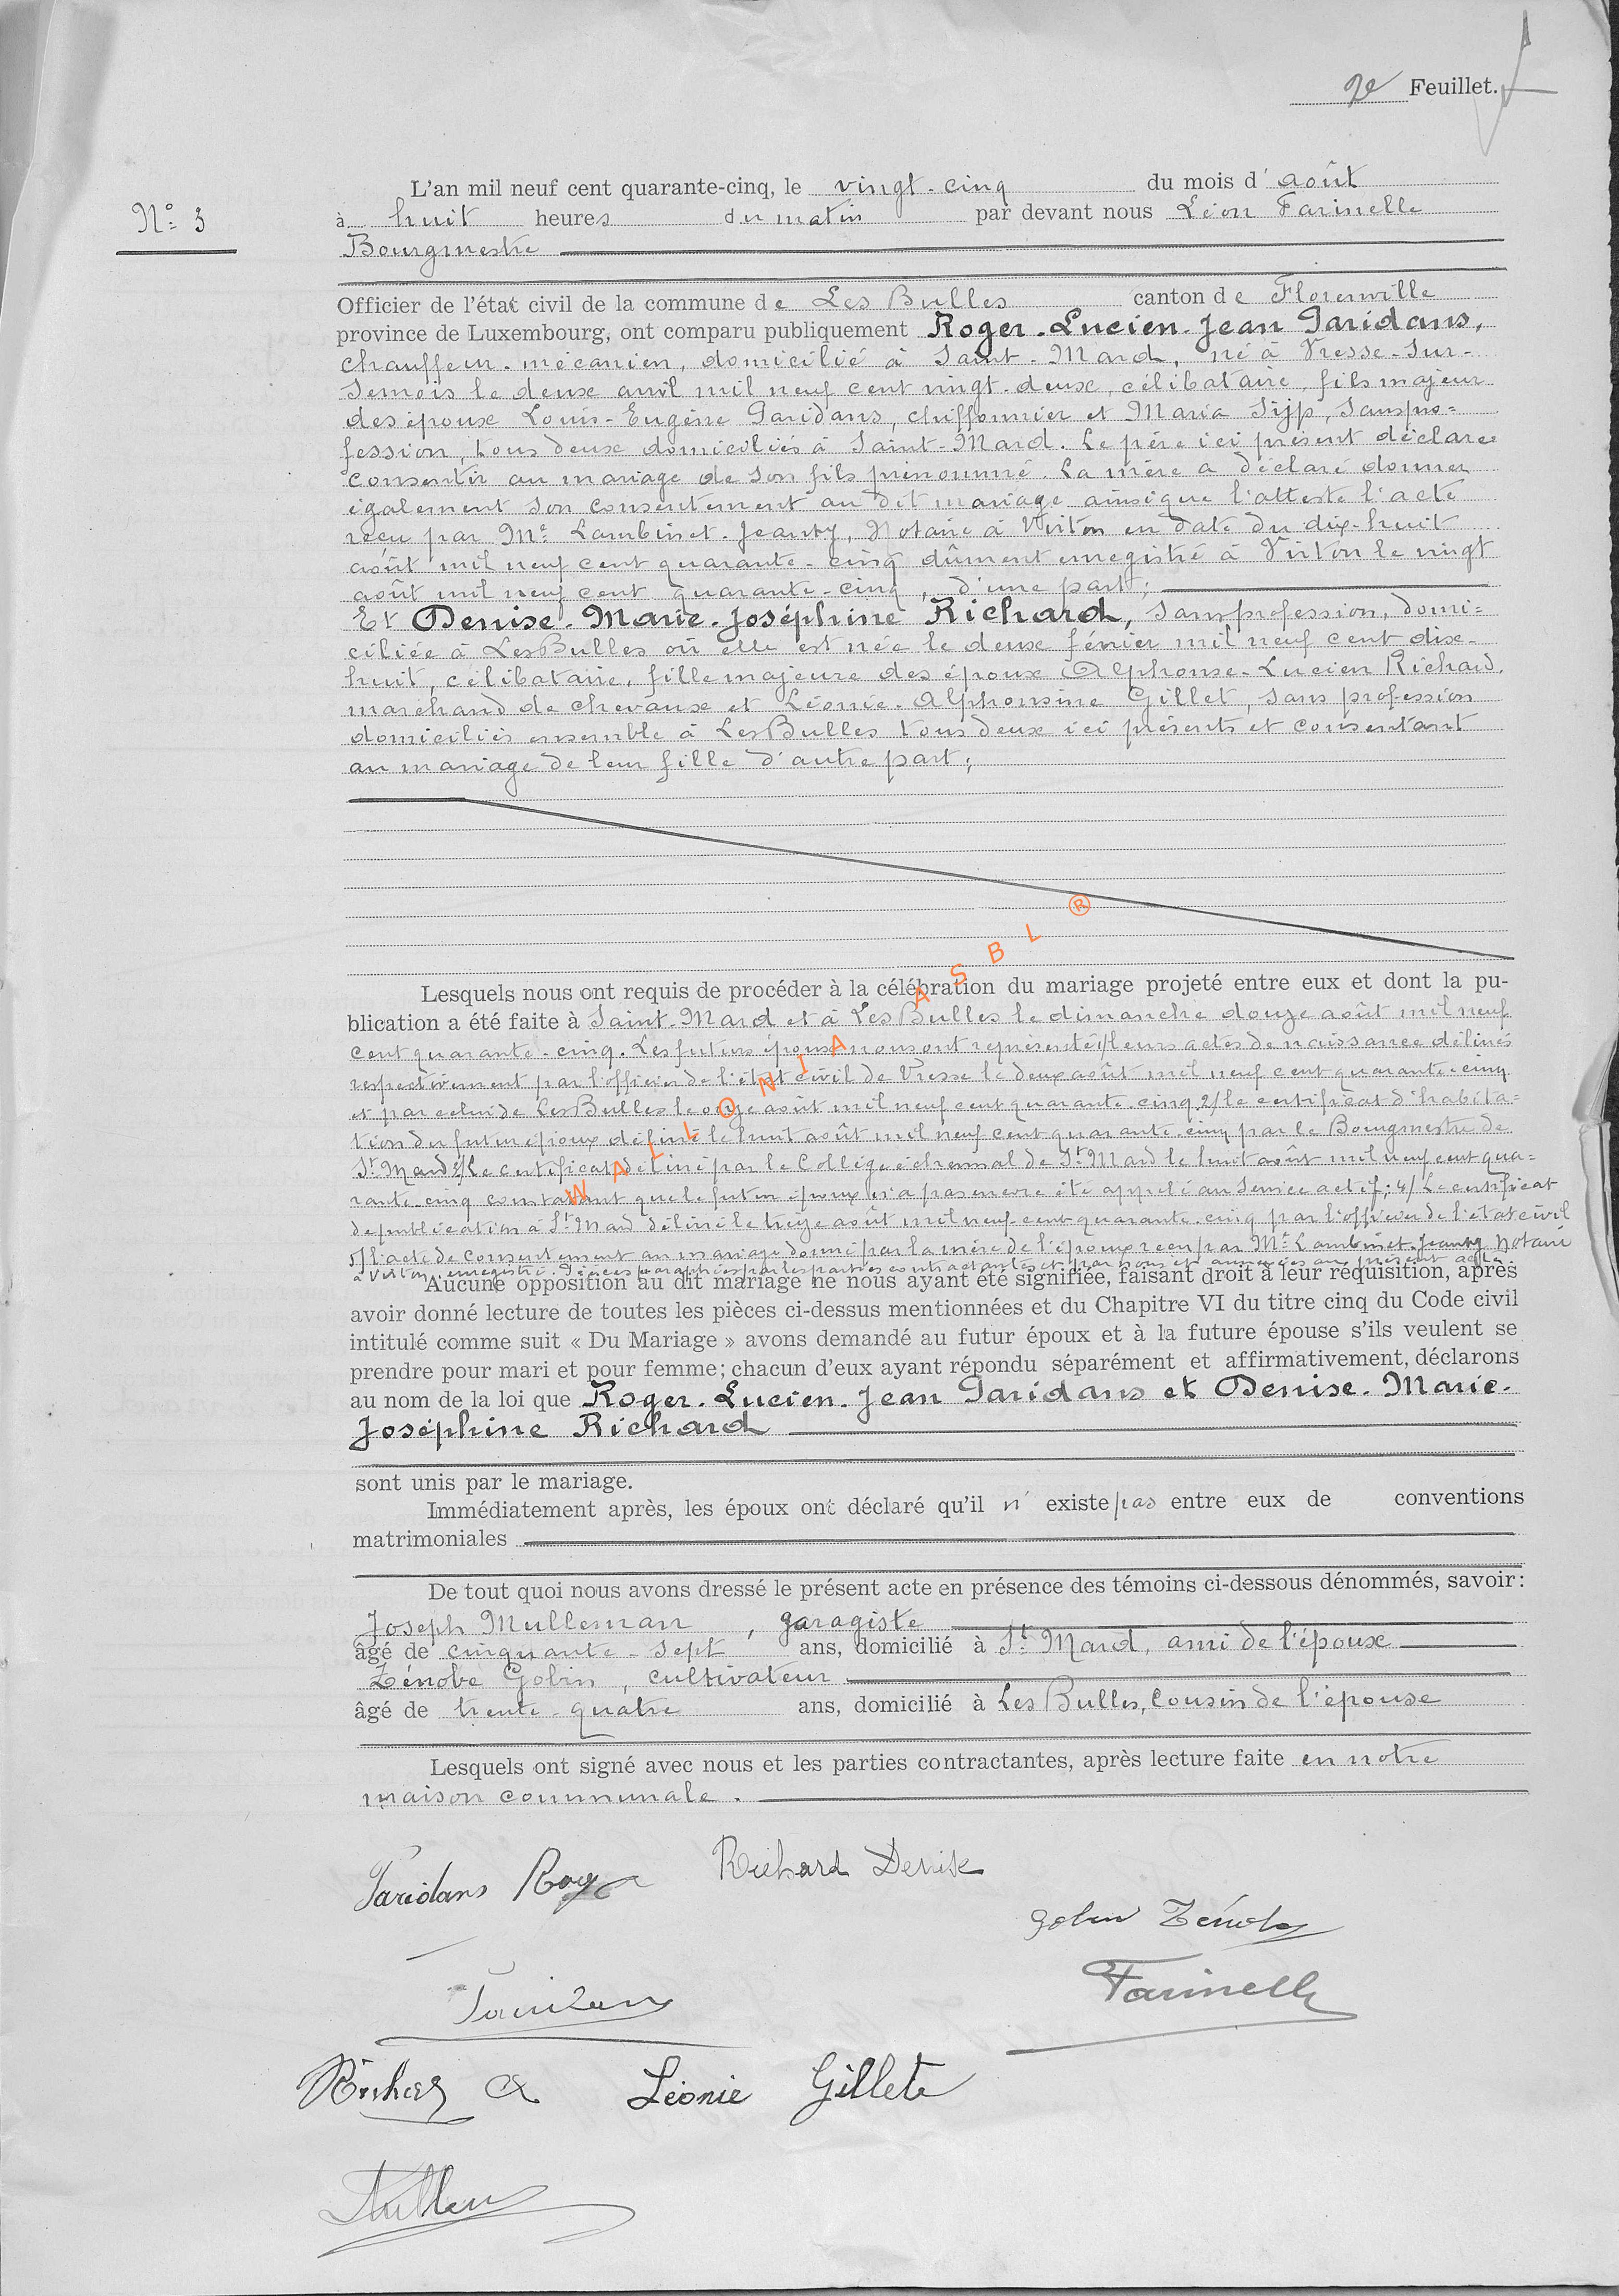 2e Feuillet.
N° 3
L'an mil neuf cent quarante-cinq, le vingt-cinq du mois d'août
à huit heures du matin par devant nous Léon Farinelle
Bourgmestre
Officier de l'état civil de la commune de Les Bulles canton de Florenville
province de Luxembourg, ont comparu publiquement Roger-Lucien-Jean Paridans,
chauffeur-mécanicien, domicilié à Saint-Mard, né à Vresse-sur-
Semois le deux avril mil neuf cent vingt-deux, célibataire, fils majeur
des époux Louis-Eugène Paridans, chiffonnier et Maria Sijp, sans pro=
fession, tous deux domiciliés à Saint-Mard. Le père ici présent déclare
consentir au mariage de son fils prénommé. La mère a déclaré donner
également son consentement au dit mariage ainsi que l'atteste l'acte
reçu par Me Lambinet-Jeanty, Notaire à Virton en date du dix-huit
août mil neuf cent quarante-cinq dûment enregistré à Virton le vingt
août mil neuf cent quarante-cinq, d'une part;
Et Denise-Marie-Joséphine Richard, sans profession, domi=
ciliée à Les Bulles où elle est née le deux février mil neuf cent dix-
huit, célibataire, fille majeure des époux Alphonse-Lucien Richard,
marchand de chevaux et Léonie-Alphonsine Gillet, sans profession
domiciliés ensemble à Les Bulles tous deux ici présents et consentant
au mariage de leur fille d'autre part;
Lesquels nous ont requis de procéder à la célébration du mariage projeté entre eux et dont la pu-
blication a été faite à Saint-Mard et à Les Bulles le dimanche douze août mil neuf
cent quarante-cinq. Les futurs époux nous ont représenté 1/ leurs actes de naissance délivrés
respectivement par l'officier de l'état civil de Vresse le deux août mil neuf cent quarante-cinq
et par celui de Les Bulles le onze août mil neuf cent quarante-cinq 2/ le certificat d'habita=
tion du futur époux délivré le huit août mil neuf cent quarante-cinq par le Bourgmestre de
St Mard 3/ Le certificat délivré par le Collège échevinal de St Mard le huit août mil neuf cent qua=
rante-cinq constatant que le futur époux n'a pas encore été appelé au service actif; 4/ Le certificat
de publication à St Mard délivré le treize août mil neuf cent quarante-cinq par l'officier de l'état civil
5/ l'acte de consentement au mariage donné par la mère de l'époux reçu par Me Lambinet-Jeanty Notaire
à Virton, enregistré. Pièces paraphées par les parties contractantes et par nous et annexées au présent acte.
Aucune opposition au dit mariage ne nous ayant été signifiée, faisant droit à leur réquisition, après
avoir donné lecture de toutes les pièces ci-dessus mentionnées et du Chapitre VI du titre cinq du Code civil
intitulé comme suit « Du Mariage » avons demandé au futur époux et à la future épouse s'ils veulent se
prendre pour mari et pour femme; chacun d'eux ayant répondu séparément et affirmativement, déclarons
au nom de la loi que Roger-Lucien-Jean Paridans et Denise-Marie-
Joséphine Richard
sont unis par le mariage.
Immédiatement après, les époux ont déclaré qu'il n'existe pas entre eux de conventions
matrimoniales
De tout quoi nous avons dressé le présent acte en présence des témoins ci-dessous dénommés, savoir:
Joseph Mulleman, garagiste
âgé de cinquante-sept ans, domicilié à St Mard, ami de l'époux
Zénobe Gobin, cultivateur
âgé de trente-quatre ans, domicilié à Les Bulles, cousin de l'épouse
Lesquels ont signé avec nous et les parties contractantes, après lecture faite en notre
maison communale.
Paridans Roger Richard Denise
Gobin Zénobe
Paridans
Farinelle
Richard A Léonie Gillet
WALLONIA ASBL ®